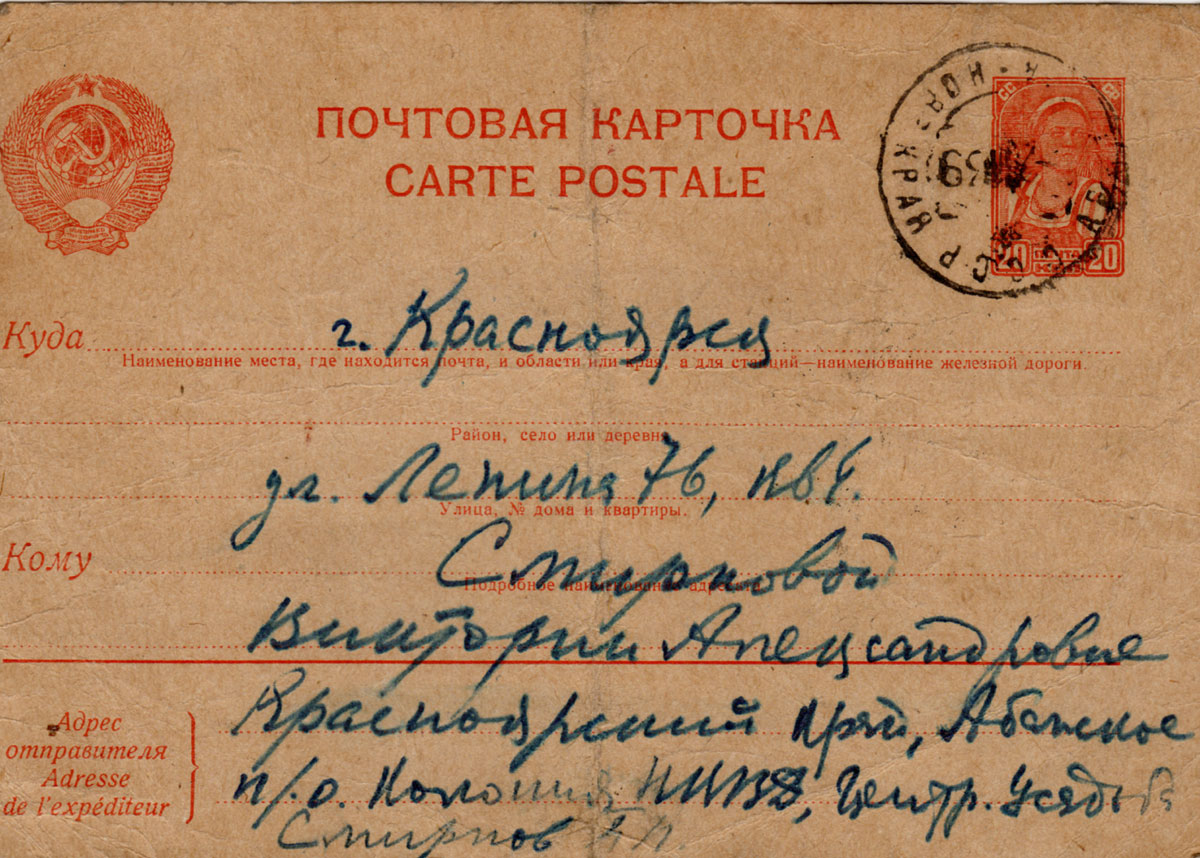 ПОЧТОВАЯ КАРТОЧКА
CARTE POSTALE
СС СР
20 ПОЧТА 20
КОП
39
КРАСНОЯР КРАЯ
Куда г. Красноярск
Наименование места, где находится почта, и области или края, а для станций—наименование железной дороги.
Район, село или деревня
ул. Ленина 76, кв 4.
Улица, № дома и квартиры.
Кому Смирновой
Подробное наименование адресата
Виктории Александровне
Адрес
отправителя
Adresse
de l'expéditeur
Красноярский край, Абанское
п/о. Колония НКВД, Центр. Усадьба
Смирнов